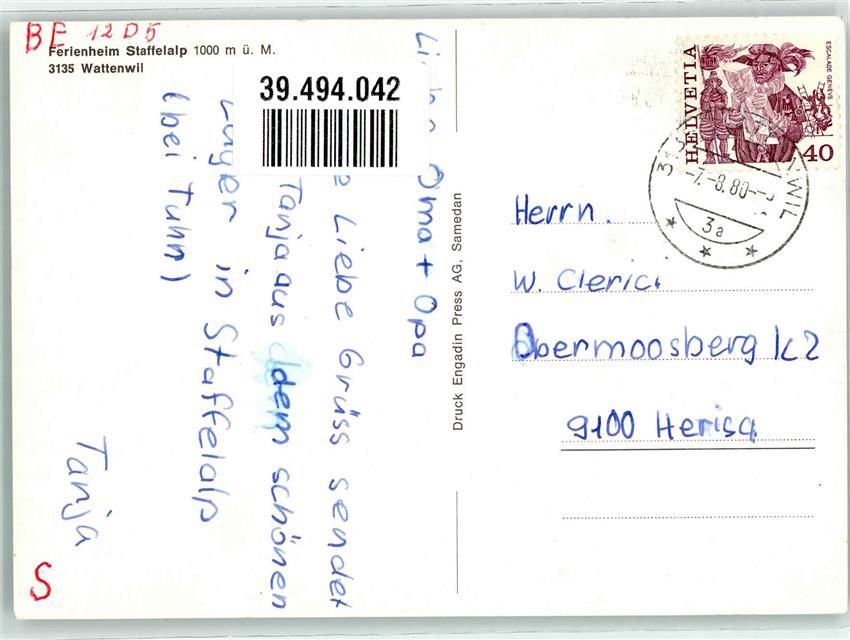 BE 12 D 5
Ferienheim Staffelalp 1000 m ü. M.
3135 Wattenwil
39.494.042
Oma + Opa
Liebe Grüss sendet
Tanja aus dem schönen
in Staffelalp
(bei Tuhn)
Tanja
S
Druck Engadin Press AG, Samedan
HELVETIA
ESCALADE GENÈVE
40
-7.-8.80
3a
Herrn.
W. Clerici
Obermoosberg 1c2
9100 Herisa